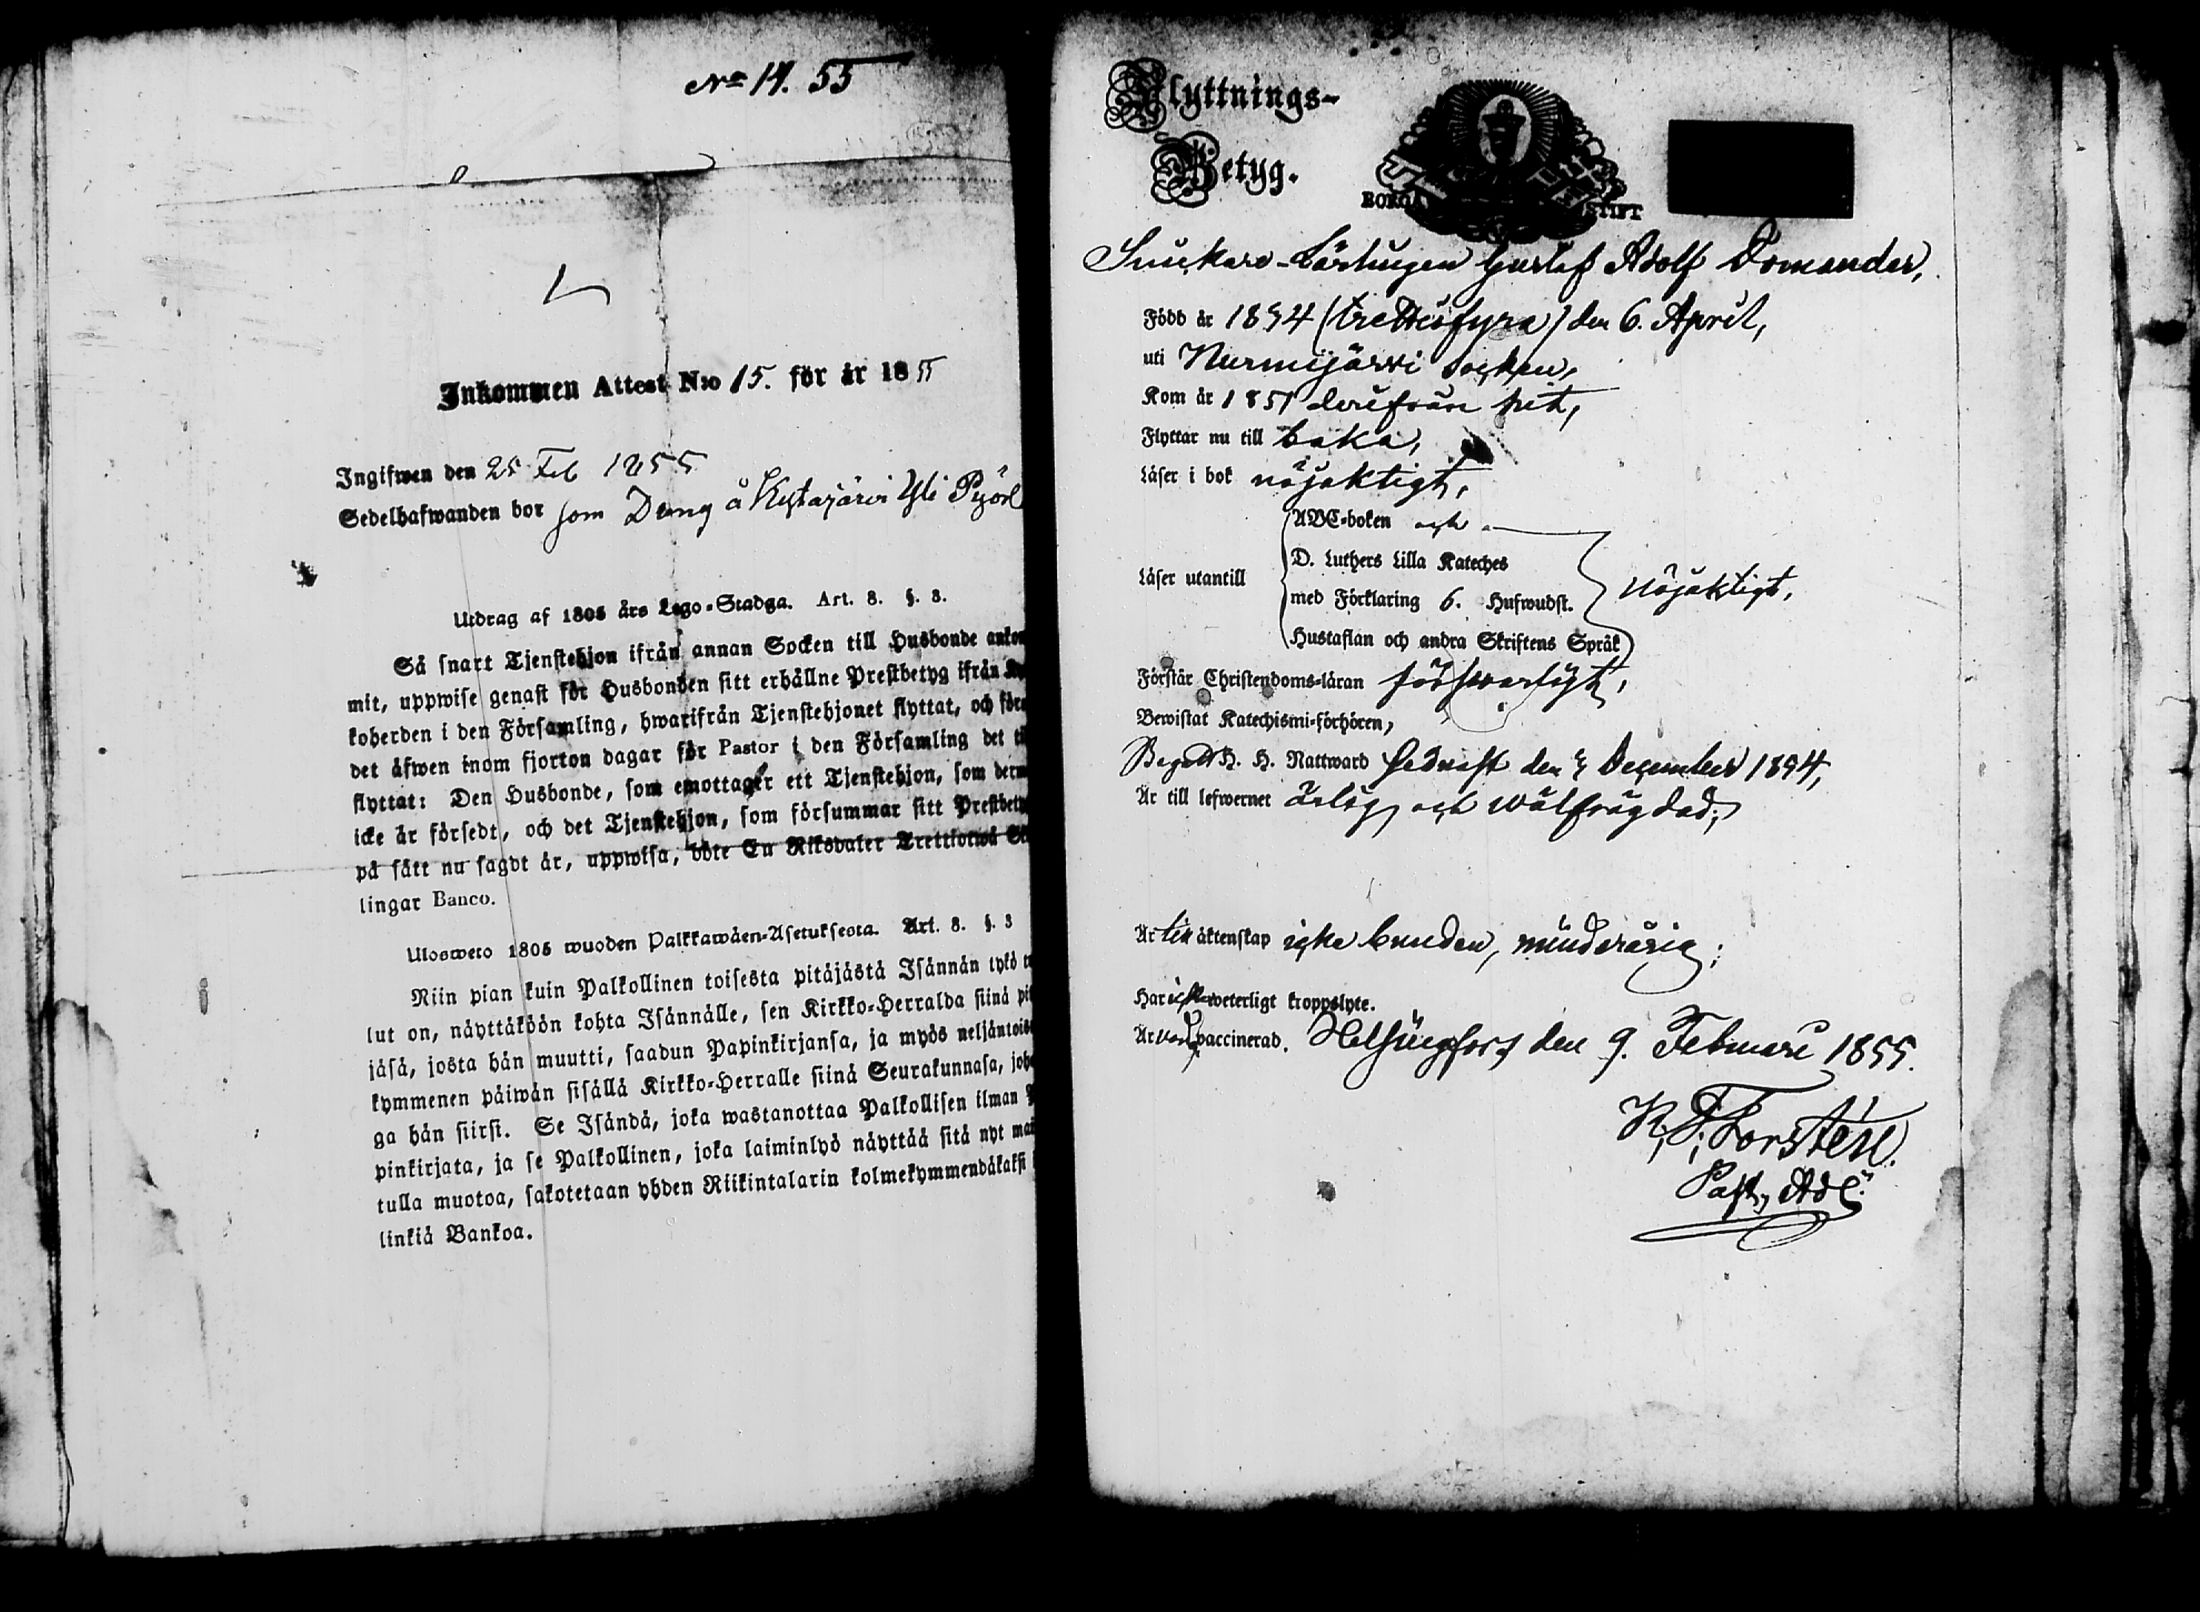 No 14. 55
Inkommen Attest N:o 15. för år 1855
Ingifwen den 25 Feb 1855
Sedelhafwanden bor som Dräng å Kytäjärvi Yli Pyöl
Utdrag af 1805 års Lego-Stadga. Art. 8. §. 3.
Så snart Tjenstehjon ifrån annan Socken till Husbonde ankom
mit, uppwise genast för Husbonden sitt erhållne Prestbetyg ifrån Ky
koherden i den Församling, hwarifrån Tjenstehjonet flyttat, och före
det äfwen inom fjorton dagar för Pastor i den Församling det ti
flyttat: Den Husbonde, som emottager ett Tjenstehjon, som derm
icke är försedt, och det Tjenstehjon, som försummar sitt Prestbety
på sätt nu sagdt är, uppwisa, böte En Riksdaler Trettiotwå Sk
lingar Banco.
Ulosweto 1805 wuoden Palkkawäen-Asetuksesta. Art. 8. §. 3
Niin pian kuin Palkollinen toisesta pitäjästä Isännän tykö tu
lut on, näyttäköön kohta Isännälle, sen Kirkko-Herralda siinä pit
jäsä, josta hän muutti, saadun Papinkirjansa, ja myös neljäntoist
kymmenen päiwän sisällä Kirkko-Herralle siinä Seurakunnasa, joho
ga hän siirsi. Se Isändä, joka wastanottaa Palkollisen ilman P
pinkirjata, ja se Palkollinen, joka laiminlyö näyttää sitä nyt mai
tulla muotoa, sakotetaan yhden Riikintalarin kolmekymmendäkaksi
linkiä Bankoa.
Flyttnings-
Betyg.
BORGÅ STIFT
Snickare-Lärlingen Gustaf Adolf Domander,
Född år 1834 (trettiofyra) den 6. April,
uti Nurmijärvi Socken,
Kom år 1851 derifrån hit,
Flyttar nu till baka,
Läser i bok nöjaktigt,
ABC-boken och
D. Luthers Lilla Kateches
Läser utantill
med Förklaring 6. Hufwudst. nöjaktigt,
Hustaflan och andra Skriftens Språk
Förstår Christendoms-läran förswarligt,
Bewistat Katechismi-förhören,
Begått H. H. Nattward sednast den 3 December 1854,
Är till lefwernet ärlig och wälfrägdad;
Är till äktenskap icke bunden, minderårig;
Har icke weterligt kroppslyte.
Är vaccinerad. Helsingfors den 9. Februari 1855.
K. J. Forstén.
Past. Adj.